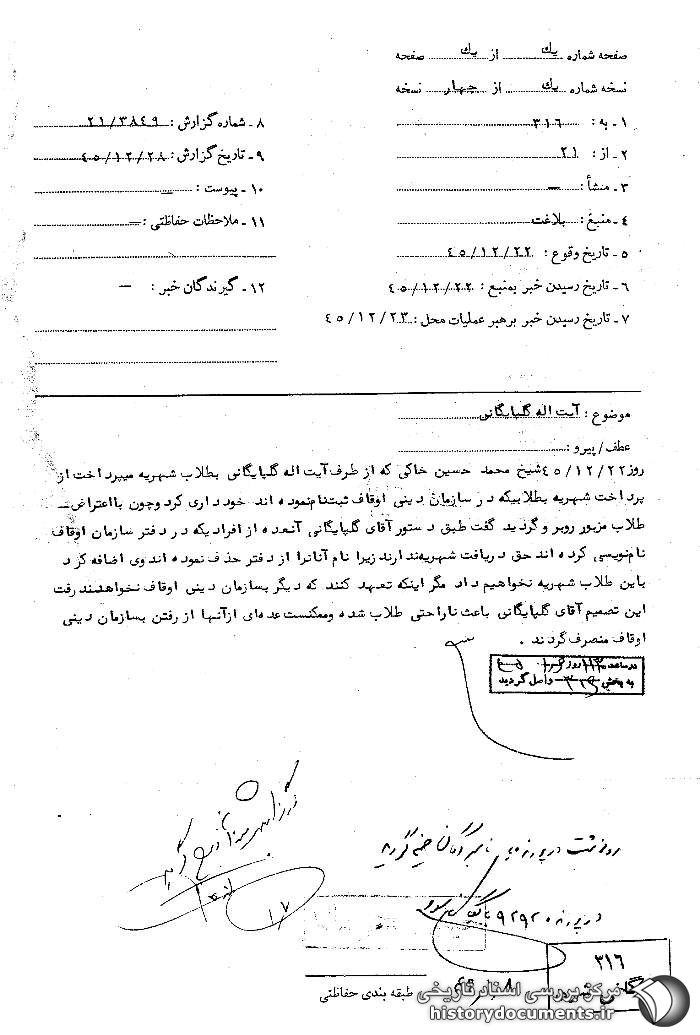 صفحه شماره یك از یك صفحه
نسخه شماره یك از چهار نسخه
۱ ـ به : ۳۱٦
۲ ـ از : ۲۱
۳ ـ منشأ : ـ
٤ ـ منبع : بلاغت
۵ ـ تاریخ وقوع : ٤۵/۱۲/۲۲
٦ ـ تاریخ رسیدن خبر بمنبع : ٤۵/۱۲/۲۲
۷ ـ تاریخ رسیدن خبر برهبر عملیات محل : ٤۵/۱۲/۲۳
۸ ـ شماره گزارش : ۲۱/۳۸٤۹
۹ ـ تاریخ گزارش : ٤۵/۱۲/۲۸
۱۰ ـ پیوست : ـ
۱۱ ـ ملاحظات حفاظتی : ـ
۱۲ ـ گیرندگان خبر : ـ
موضوع : آیت اله گلپایگانی
عطف/ پیرو :
روز ٤۵/۱۲/۲۲ شیخ محمد حسین خاکی که از طرف آیت اله گلپایگانی بطلاب شهریه میپرداخت از
پرداخت شهریه بطلابیکه در سازمان دینی اوقاف ثبت‌نام‌نموده اند خودداری کرد و چون با اعتراض ـ
طلاب مزبور روبرو گردید گفت طبق دستور آقای گلپایگانی آنعده از افرادیکه در دفتر سازمان اوقاف
نام‌نویسی کرده اند حق دریافت شهریه‌ندارند زیرا نام آنانرا از دفتر حذف نموده اند وی اضافه کرد
باین طلاب شهریه نخواهیم داد مگر اینکه تعهد کنند که دیگر بسازمان دینی اوقاف نخواهند رفت
این تصمیم آقای گلپایگانی باعث ناراحتی طلاب شده وممکنست عده‌ای ازآنها از رفتن بسازمان دینی
اوقاف منصرف گردند .
در ساعت روز
به بخش ۳۱٦ واصل گردید
در پرونده
۱۷
۳۱٦
طبقه بندی حفاظتی
مرکز بررسی اسناد تاریخی
historydocuments.ir